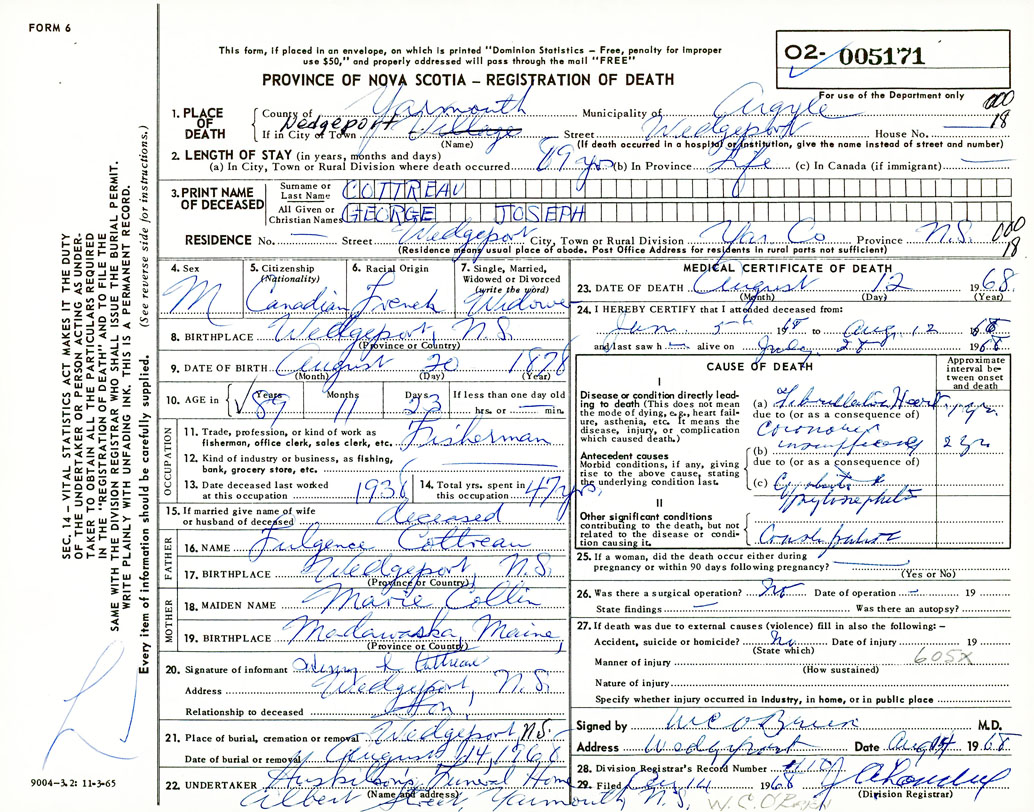 FORM 6
This form, if placed in an envelope, on which is printed "Dominion Statistics – Free, penalty for improper
use $50," and properly addressed will pass through the mail "FREE"
PROVINCE OF NOVA SCOTIA – REGISTRATION OF DEATH
O2- 005171
For use of the Department only
000
18
1. PLACE OF DEATH
County of Yarmouth Municipality of Argyle
If in City or Town Wedgeport Village Street Wedgeport House No.
(Name) (If death occurred in a hospital or institution, give the name instead of street and number)
2. LENGTH OF STAY (in years, months and days)
(a) In City, Town or Rural Division where death occurred 89 yrs (b) In Province Life (c) In Canada (if immigrant) —
3. PRINT NAME OF DECEASED
Surname or Last Name COTTREAU
All Given or Christian Names GEORGE JOSEPH
RESIDENCE No. — Street Wedgeport City, Town or Rural Division Yar Co Province N.S.
(Residence means usual place of abode. Post Office Address for residents in rural parts not sufficient)
000
18
4. Sex M
5. Citizenship (Nationality) Canadian
6. Racial Origin French
7. Single, Married, Widowed or Divorced (write the word) Widower
8. BIRTHPLACE Wedgeport, N.S.
(Province or Country)
9. DATE OF BIRTH August 20 1878
(Month) (Day) (Year)
10. AGE in Years 89 Months 11 Days 23 If less than one day old
hrs. or min.
OCCUPATION
11. Trade, profession, or kind of work as fisherman, office clerk, sales clerk, etc. Fisherman
12. Kind of industry or business, as fishing, bank, grocery store, etc.
13. Date deceased last worked at this occupation 1936
14. Total yrs. spent in this occupation 47 yrs.
15. If married give name of wife or husband of deceased deceased
FATHER
16. NAME Fulgence Cottreau
17. BIRTHPLACE Wedgeport, N.S.
(Province or Country)
MOTHER
18. MAIDEN NAME Marie Collin
19. BIRTHPLACE Madawaska, Maine,
(Province or Country)
20. Signature of informant Cottreau
Address Wedgeport, N.S.
Relationship to deceased Son,
21. Place of burial, cremation or removal Wedgeport, N.S.
Date of burial or removal August 14, 1968
22. UNDERTAKER Huskilson's Funeral Home
(Name and address)
Albert Street, Yarmouth, N.S.
MEDICAL CERTIFICATE OF DEATH
23. DATE OF DEATH August 12 1968
(Month) (Day) (Year)
24. I HEREBY CERTIFY that I attended deceased from:
Jan. 5th 1968 to Aug. 12 1968
and last saw h— alive on July 28, 1968
CAUSE OF DEATH
Approximate interval between onset and death
I
Disease or condition directly leading to death (This does not mean the mode of dying, e.g., heart failure, asthenia, etc. It means the disease, injury, or complication which caused death.)
(a) Heart
due to (or as a consequence of)
Coronary
Antecedent causes
Morbid conditions, if any, giving rise to the above cause, stating the underlying condition last.
(b) insufficiency 2 yrs
due to (or as a consequence of)
(c)
II
Other significant conditions contributing to the death, but not related to the disease or condition causing it.
25. If a woman, did the death occur either during pregnancy or within 90 days following pregnancy? —
(Yes or No)
26. Was there a surgical operation? No Date of operation — 19
State findings — Was there an autopsy?
27. If death was due to external causes (violence) fill in also the following: –
Accident, suicide or homicide? No Date of injury 19
(State which)
605X
Manner of injury
(How sustained)
Nature of injury
Specify whether injury occurred in Industry, in home, or in public place
Signed by W C O'Brien M.D.
Address Wedgeport Date Aug 14 1968
28. Division Registrar's Record Number
29. Filed 14 1968
(Division Registrar)
W.C. O'Brien
SEC. 14 – VITAL STATISTICS ACT MAKES IT THE DUTY
OF THE UNDERTAKER OR PERSON ACTING AS UNDER-
TAKER TO OBTAIN ALL THE PARTICULARS REQUIRED
IN THE "REGISTRATION OF DEATH" AND TO FILE THE
SAME WITH THE DIVISION REGISTRAR WHO SHALL ISSUE THE BURIAL PERMIT.
WRITE PLAINLY WITH UNFADING INK. THIS IS A PERMANENT RECORD.
Every item of information should be carefully supplied. (See reverse side for instructions.)
9004–3.2: 11-3-65